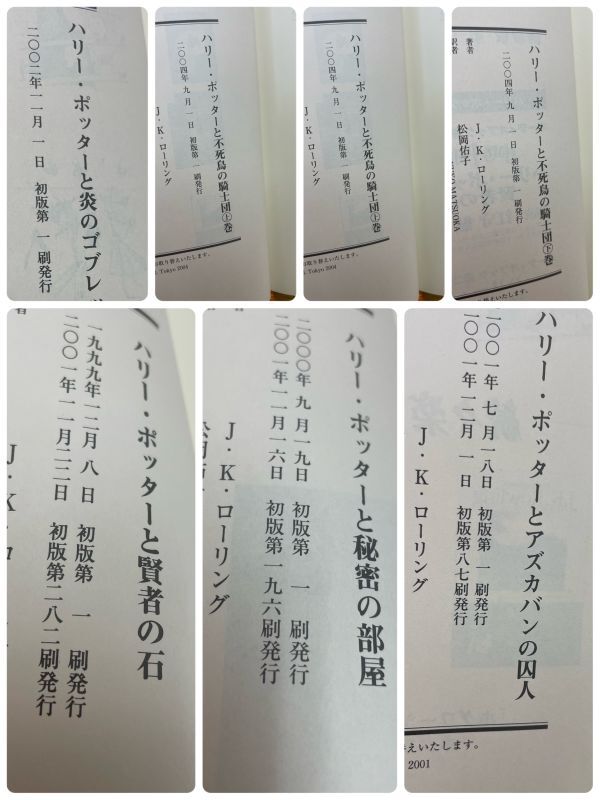 ハリー・ポッターと炎のゴブレッ
二〇〇二年一一月一日 初版第一刷発行
ハリー・ポッターと不死鳥の騎士団㊤巻
二〇〇四年九月一日 初版第一刷発行
J・K・ローリング
取り替えいたします。
Tokyo 2004
ハリー・ポッターと不死鳥の騎士団㊤巻
二〇〇四年九月一日 初版第一刷発行
J・K・ローリング
取り替えいたします。
Tokyo 2004
ハリー・ポッターと不死鳥の騎士団㊦巻
二〇〇四年九月一日 初版第一刷発行
著者 J・K・ローリング
訳者 松岡佑子
MATSUOKA
取り替えいたします。
Tokyo 2004
ハリー・ポッターと賢者の石
一九九九年一二月八日 初版第一刷発行
二〇〇一年一一月二二日 初版第二八二刷発行
J・K・ロ
ハリー・ポッターと秘密の部屋
二〇〇〇年九月一九日 初版第一刷発行
二〇〇一年一一月一六日 初版第一九六刷発行
J・K・ローリング
ハリー・ポッターとアズカバンの囚人
二〇〇一年七月一八日 初版第一刷発行
二〇〇一年一二月一日 初版第八七刷発行
J・K・ローリング
替えいたします。
2001